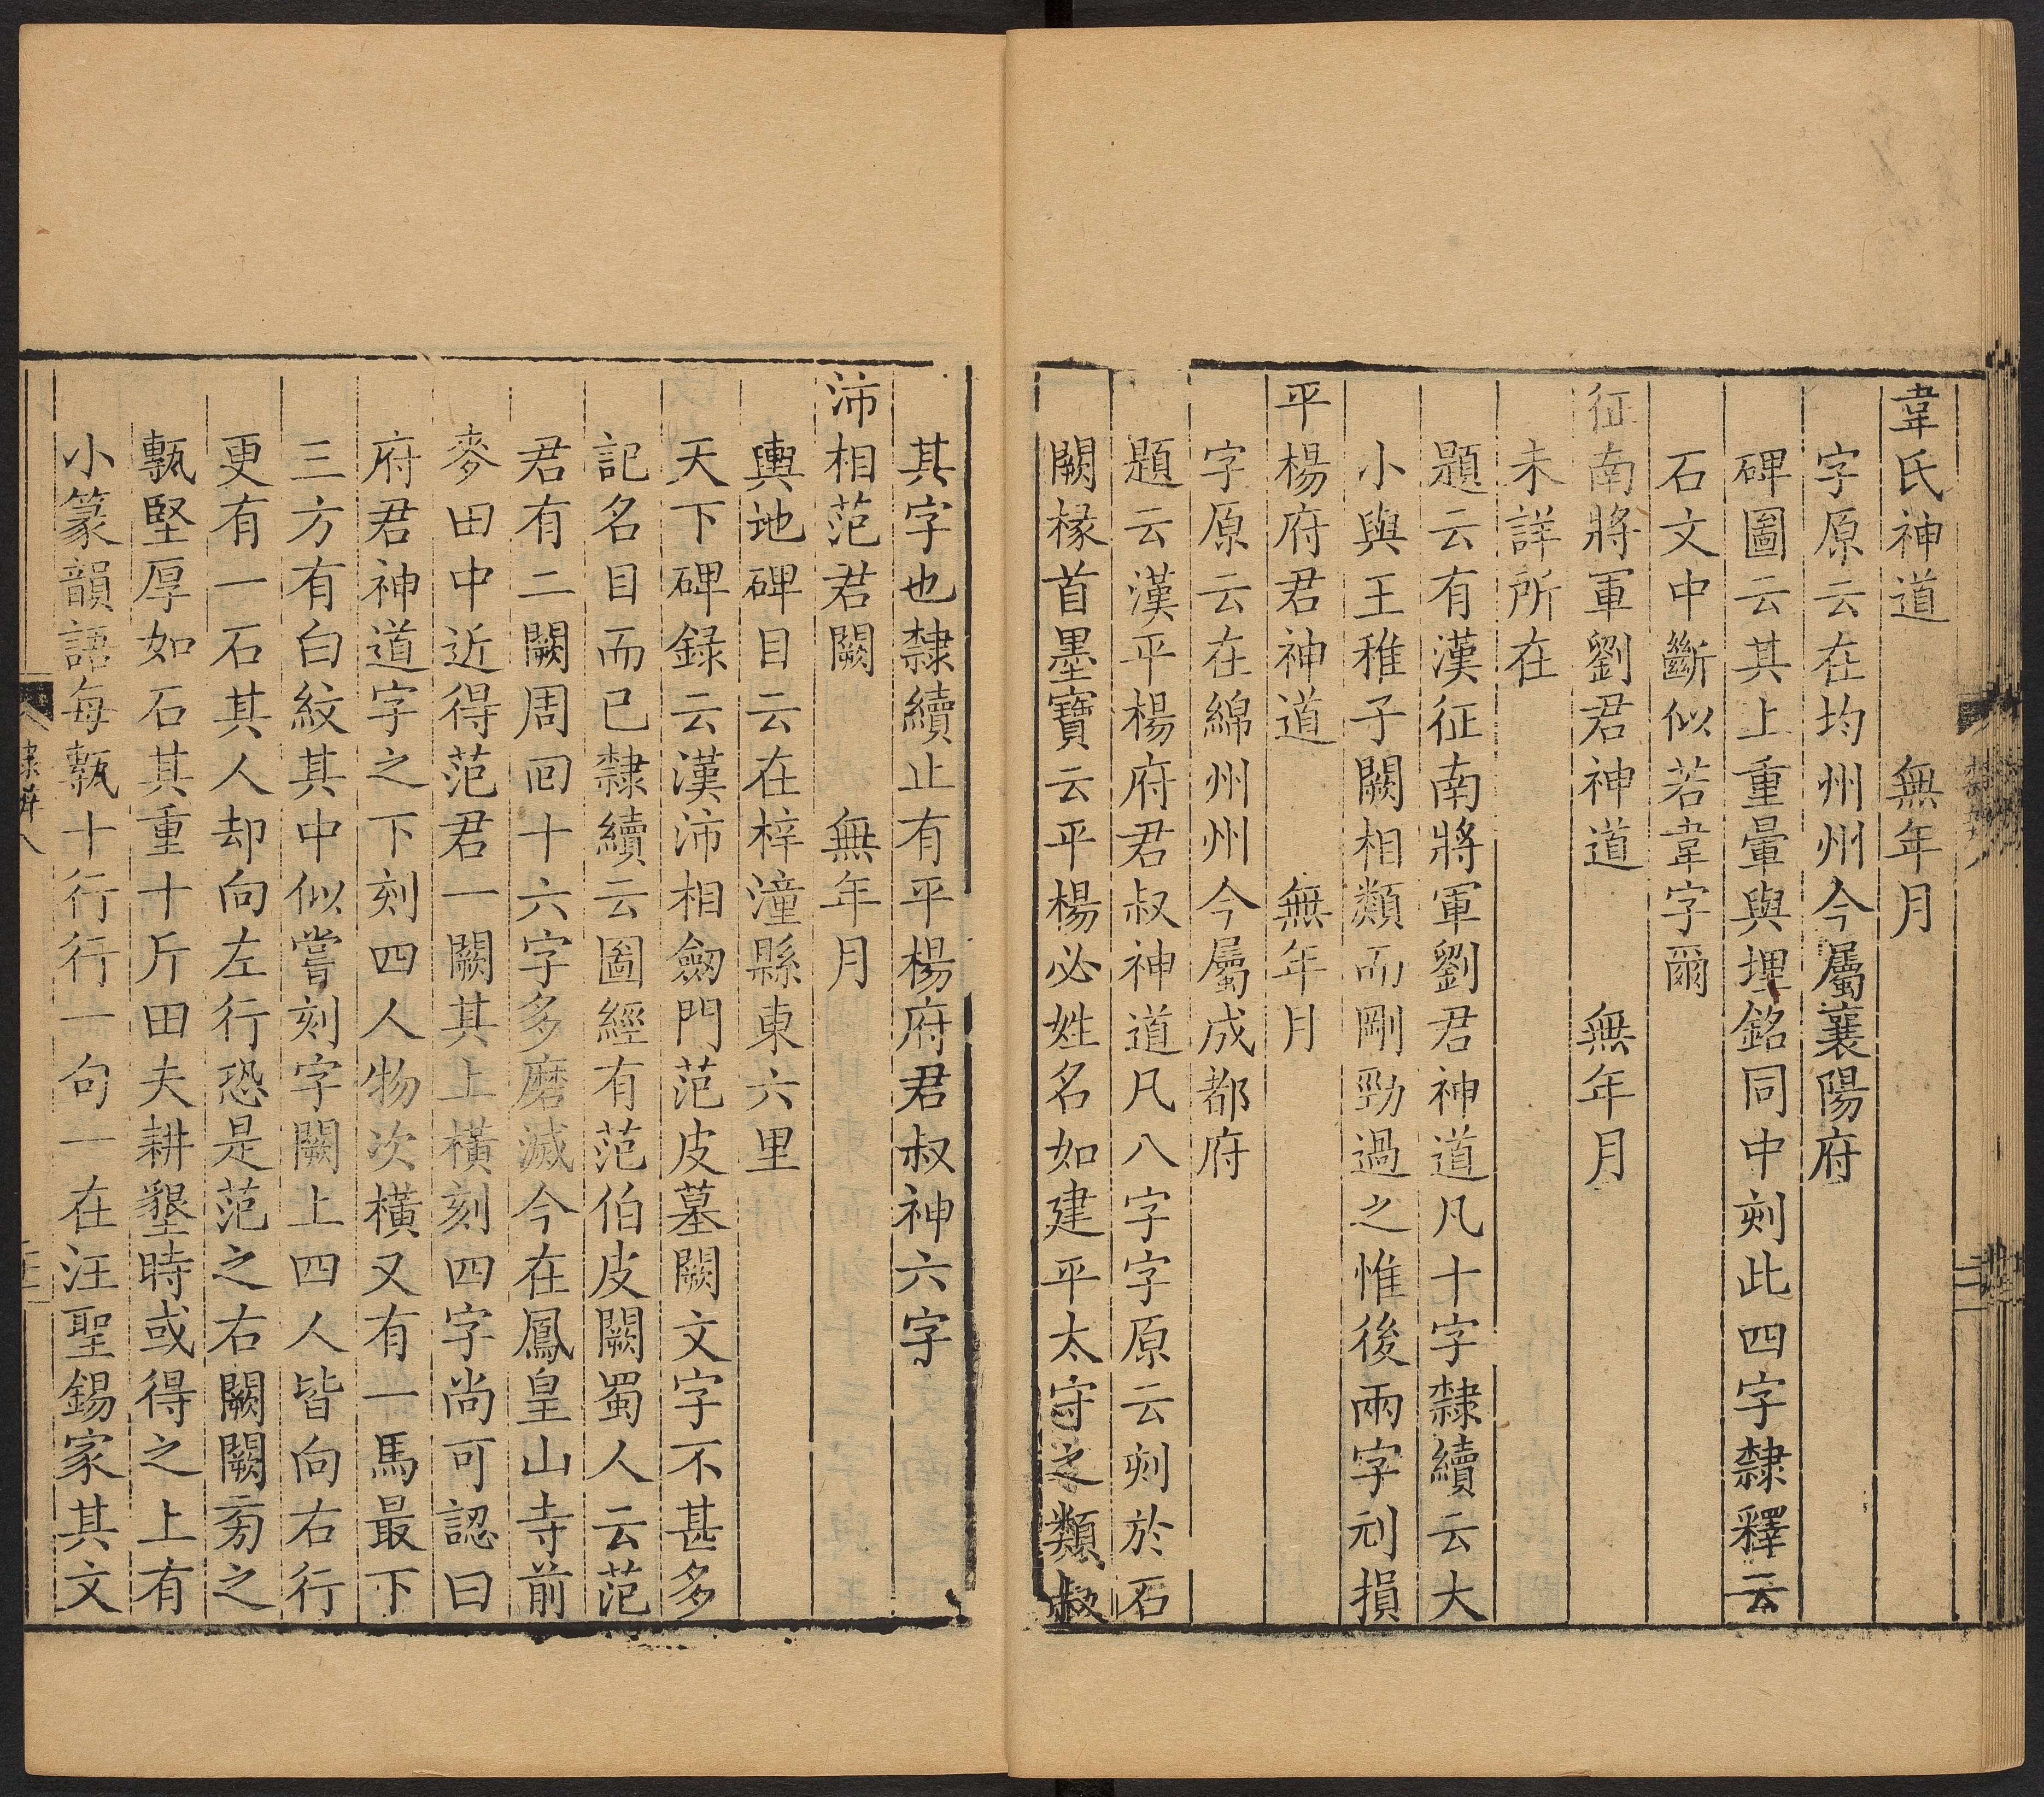 韋氏神道 無年月
字原云在均州州今屬襄陽府
碑圖云其上重暈與埋銘同中刻此四字隸釋云
石文中斷似若韋字爾
征南將軍劉君神道 無年月
未詳所在
題云有漢征南將軍劉君神道凡十字隸續云大
小與王稚子闕相類而剛勁過之惟後兩字刓損
平楊府君神道 無年月
字原云在綿州州今屬成都府
題云漢平楊府君叔神道凡八字字原云刻於石
闕椽首墨寶云平楊必姓名如建平太守之類叔
其字也隸續止有平楊府君叔神六字
沛相范君闕 無年月
輿地碑目云在梓潼縣東六里
天下碑録云漢沛相劔門范皮墓闕文字不甚多
記名目而已隸續云圖經有范伯皮闕蜀人云范
君有二闕周回十六字多磨滅今在鳳皇山寺前
麥田中近得范君一闕其上橫刻四字尚可認曰
府君神道字之下刻四人物次橫又有一馬最下
三方有白紋其中似嘗刻字闕上四人皆向右行
更有一石其人却向左行恐是范之右闕闕旁之
甎堅厚如石其重十斤田夫耕墾時或得之上有
小篆韻語每甎十行行一句一在汪聖錫家其文
隸辨八